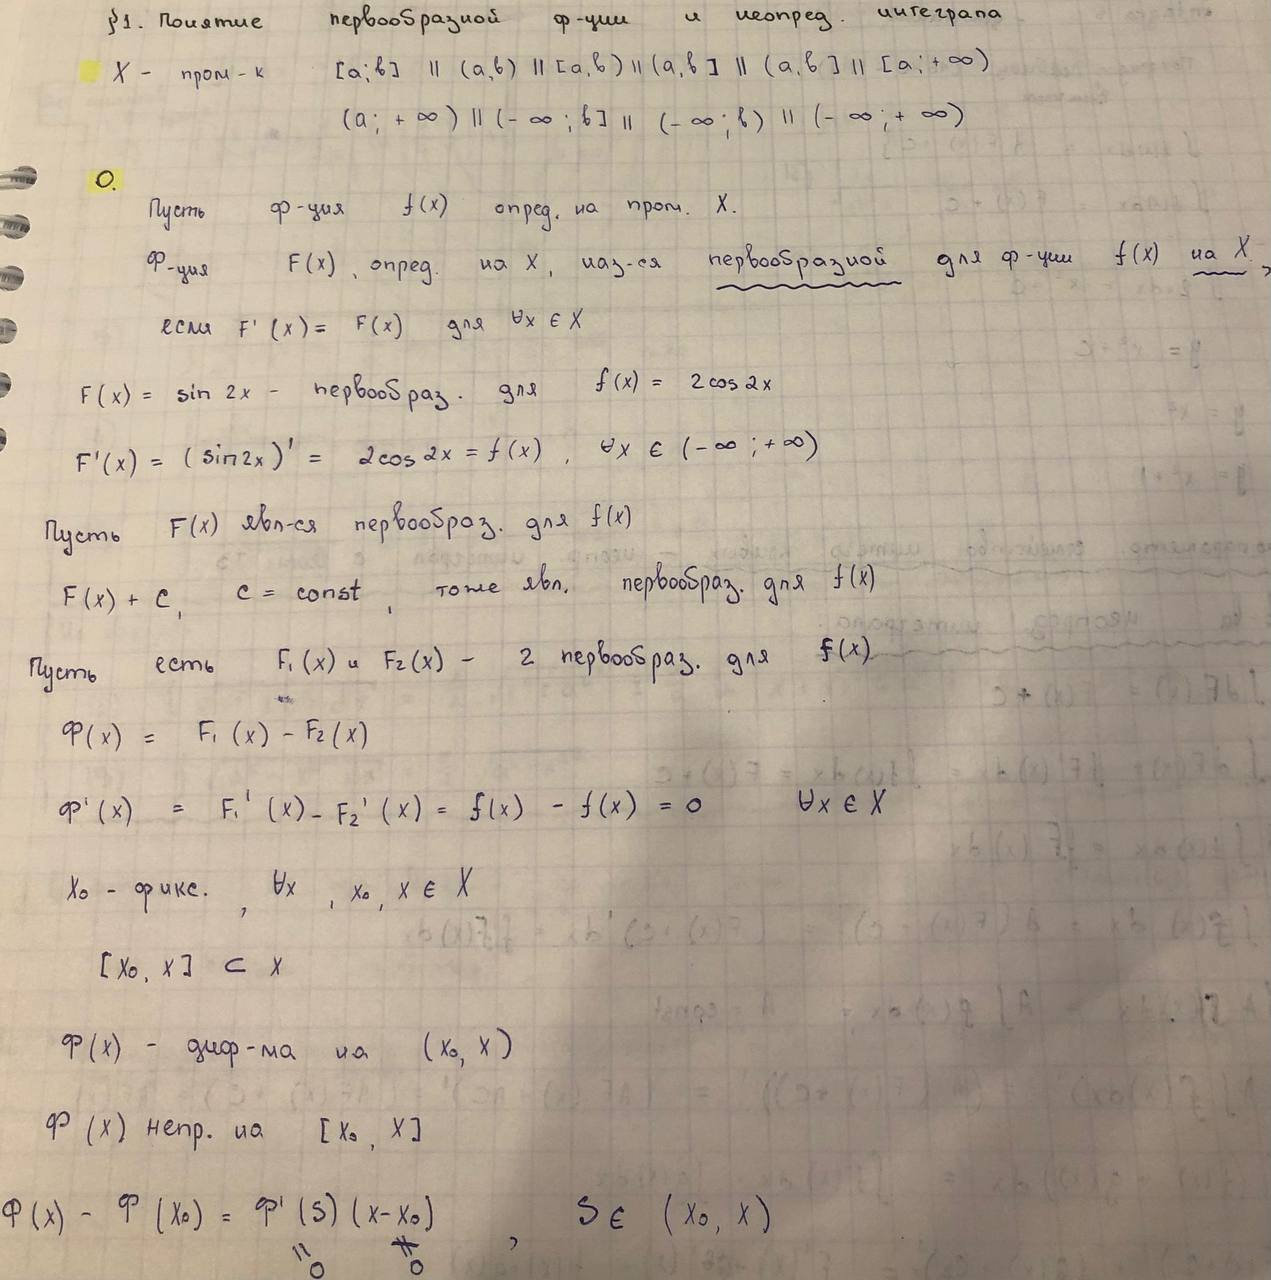 §1. Понятие первообразной ф-ции и неопред. интеграла
X - пром-к [a;b] || (a,b) || [a,b) || (a,b] || (a,b] || [a;+∞)
(a; +∞) || (-∞;b] || (-∞;b) || (-∞;+∞)
О.
Пусть ф-ция f(x) опред. на пром. X.
Ф-ция F(x), опред. на X, наз-ся первообразной для ф-ции f(x) на X,
если F'(x) = F(x) для ∀x ∈ X
F(x) = sin 2x - первообраз. для f(x) = 2cos2x
F'(x) = (sin2x)' = 2cos2x = f(x), ∀x ∈ (-∞;+∞)
Пусть F(x) явл-ся первообраз. для f(x)
F(x) + C, C = const, тоже явл. первообраз. для f(x)
Пусть есть F₁(x) и F₂(x) - 2 первообраз. для f(x)
Ф(x) = F₁(x) - F₂(x)
Ф'(x) = F₁'(x) - F₂'(x) = f(x) - f(x) = 0 ∀x ∈ X
X₀ - фикс., ∀x, x₀, x ∈ X
[X₀, X] ⊂ X
Ф(x) - диф-ма на (X₀, X)
Ф(x) непр. на [X₀, X]
Ф(x) - Ф(x₀) = Ф'(S)(x-x₀), S ∈ (x₀, x)
= ≠
0 0